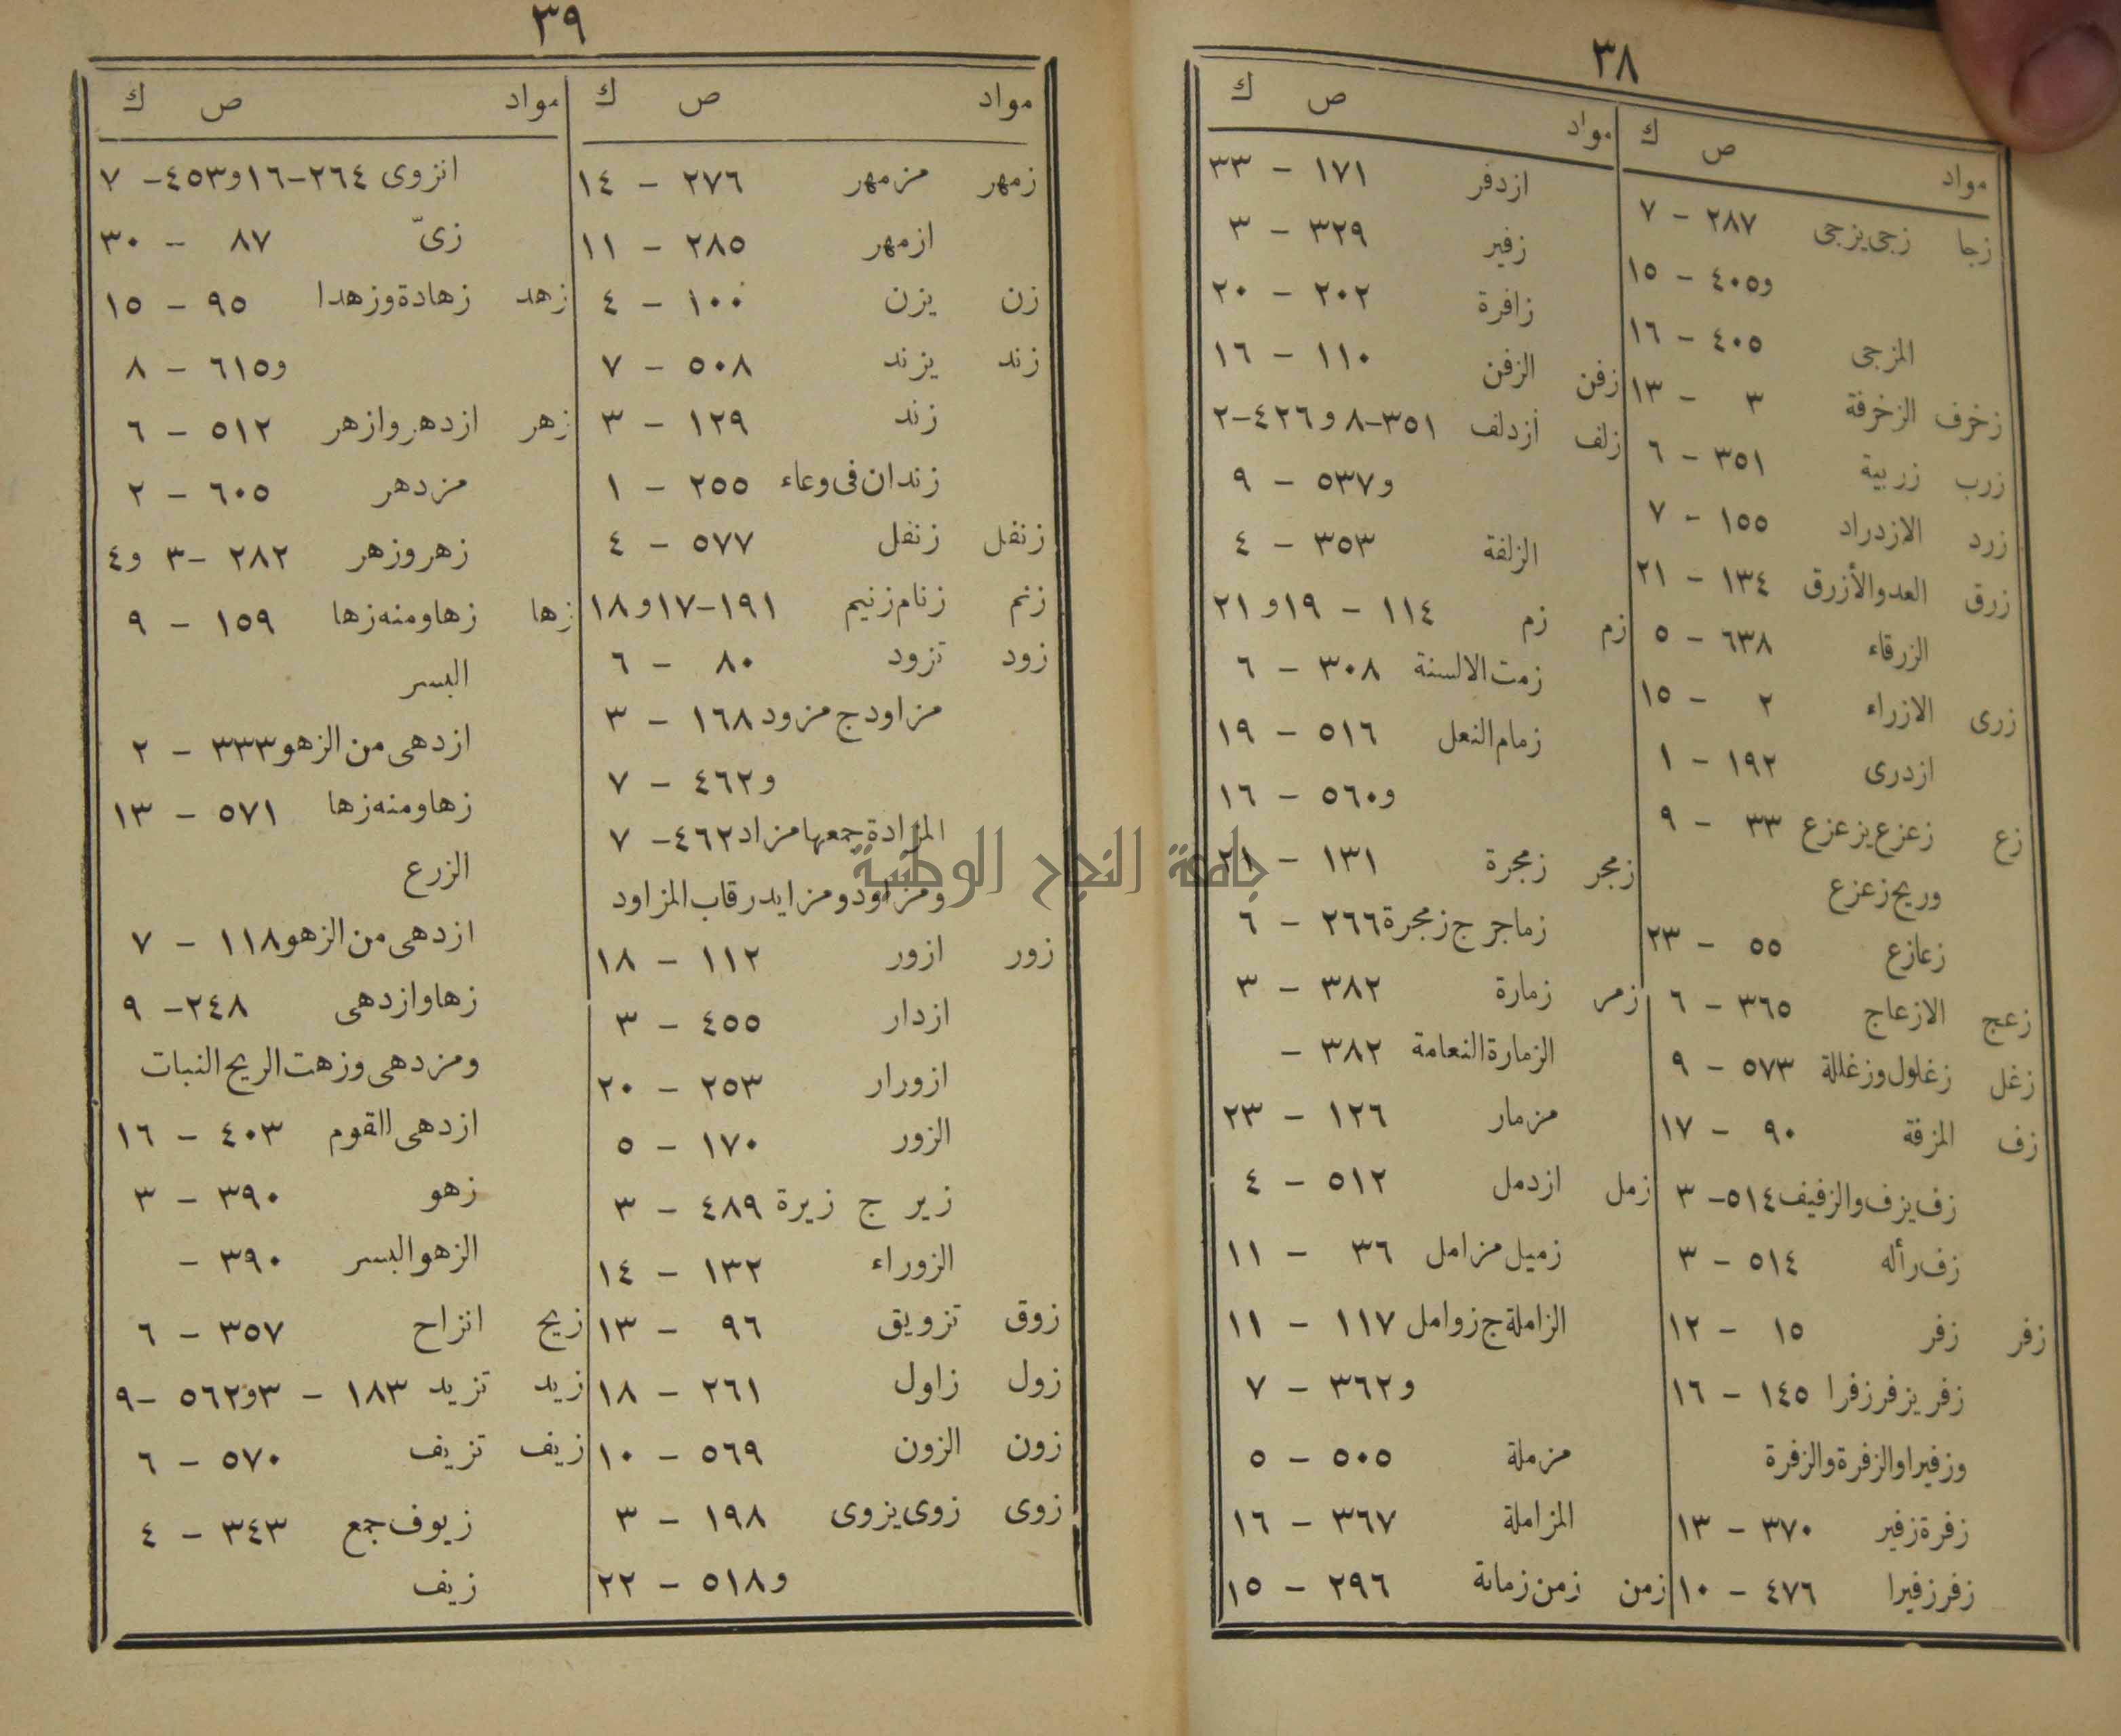 ٣٨
مواد ص ك
زجا زجى يزجى ٢٨٧ - ٧
و٤٠٥ - ١٥
المزجى ٤٠٥ - ١٦
زخرف الزخرفة ٣ - ١٣
زرب زربية ٣٥١ - ٦
زرد الازدراد ١٥٥ - ٧
زرق العدو الأزرق ١٣٤ - ٢١
الزرقاء ٦٣٨ - ٥
زرى الازراء ٢ - ١٥
ازدرى ١٩٢ - ١
زع زعزع يزعزع ٣٣ - ٩
وريح زعزع
زعازع ٥٥ - ٢٣
زعج الازعاج ٣٦٥ - ٦
زغل زغلول وزغللة ٥٧٣ - ٩
زف المزفة ٩٠ - ١٧
زف يزف والزفيف ٥١٤- ٣
زف رأله ٥١٤ - ٣
زفر زفر ١٥ - ١٢
زفر يزفر زفرا ١٤٥ - ١٦
وزفيرا والزفرة والزفرة
زفرة زفير ٣٧٠ - ١٣
زفر زفيرا ٤٧٦ - ١٠
مواد ص ك
ازدفر ١٧١ - ٣٣
زفير ٣٢٩ - ٣
زافرة ٢٠٢ - ٢٠
زفن الزفن ١١٠ - ١٦
زلف ازدلف ٣٥١-٨ و ٤٢٦-٢
و٥٣٧ - ٩
الزلفة ٣٥٣ - ٤
زم زم ١١٤ - ١٩و ٢١
زمت الالسنة ٣٠٨ - ٦
زمام النعل ٥١٦ - ١٩
و٥٦٠ - ١٦
زمجر زمجرة ١٣١ - ٢١
زماجر ج زمجرة ٢٦٦ - ٦
زمر زمارة ٣٨٢ - ٣
الزمارة النعامة ٣٨٢ -
مزمار ١٢٦ - ٢٣
زمل ازدمل ٥١٢ - ٤
زميل مزامل ٣٦ - ١١
الزاملة ج زوامل ١١٧ - ١١
و٣٦٢ - ٧
مزملة ٥٠٥ - ٥
المزاملة ٣٦٧ - ١٦
زمن زمن زمانة ٢٩٦ - ١٥
٣٩
مواد ص ك
زمهر مزمهر ٢٧٦ - ١٤
ازمهر ٢٨٥ - ١١
زن يزن ١٠٠ - ٤
زند يزند ٥٠٨ - ٧
زند ١٢٩ - ٣
زندان فى وعاء ٢٥٥ - ١
زنفل زنفل ٥٧٧ - ٤
زنم زنام زنيم ١٩١-١٧و١٨
زود تزود ٨٠ - ٦
مزاود ج مزود ١٦٨ - ٣
و٤٦٢ - ٧
المزادة جمعها مزاد ٤٦٢- ٧
ومزاود ومزايد رقاب المزاود
زور ازور ١١٢ - ١٨
ازدار ٤٥٥ - ٣
ازورار ٢٥٣ - ٢٠
الزور ١٧٠ - ٥
زير ج زيرة ٤٨٩ - ٣
الزوراء ١٣٢ - ١٤
زوق تزويق ٩٦ - ١٣
زول زاول ٢٦١ - ١٨
زون الزون ٥٦٩ - ١٠
زوى زوى يزوى ١٩٨ - ٣
و٥١٨ - ٢٢
مواد ص ك
انزوى ٢٦٤-١٦و٤٥٣- ٧
زىّ ٨٧ - ٣٠
زهد زهادة وزهدا ٩٥ - ١٥
و٦١٥ - ٨
زهر ازدهر وازهر ٥١٢ - ٦
مزدهر ٦٠٥ - ٢
زهر وزهر ٢٨٢ -٣ و٤
زها زها ومنه زها ١٥٩ - ٩
البسر
ازدهى من الزهو ٣٣٣ - ٢
زها ومنه زها ٥٧١ - ١٣
الزرع
ازدهى من الزهو ١١٨ - ٧
زها وازدهى ٢٤٨- ٩
ومزدهى وزهت الريح النبات
ازدهى القوم ٤٠٣ - ١٦
زهو ٣٩٠ - ٣
الزهو البسر ٣٩٠ -
زيح انزاح ٣٥٧ - ٦
زيد تزيد ١٨٣ - ٣و٥٦٢ -٩
زيف تزيف ٥٧٠ - ٦
زيوف جمع ٣٤٣ - ٤
زيف
جامعة النجاح الوطنية